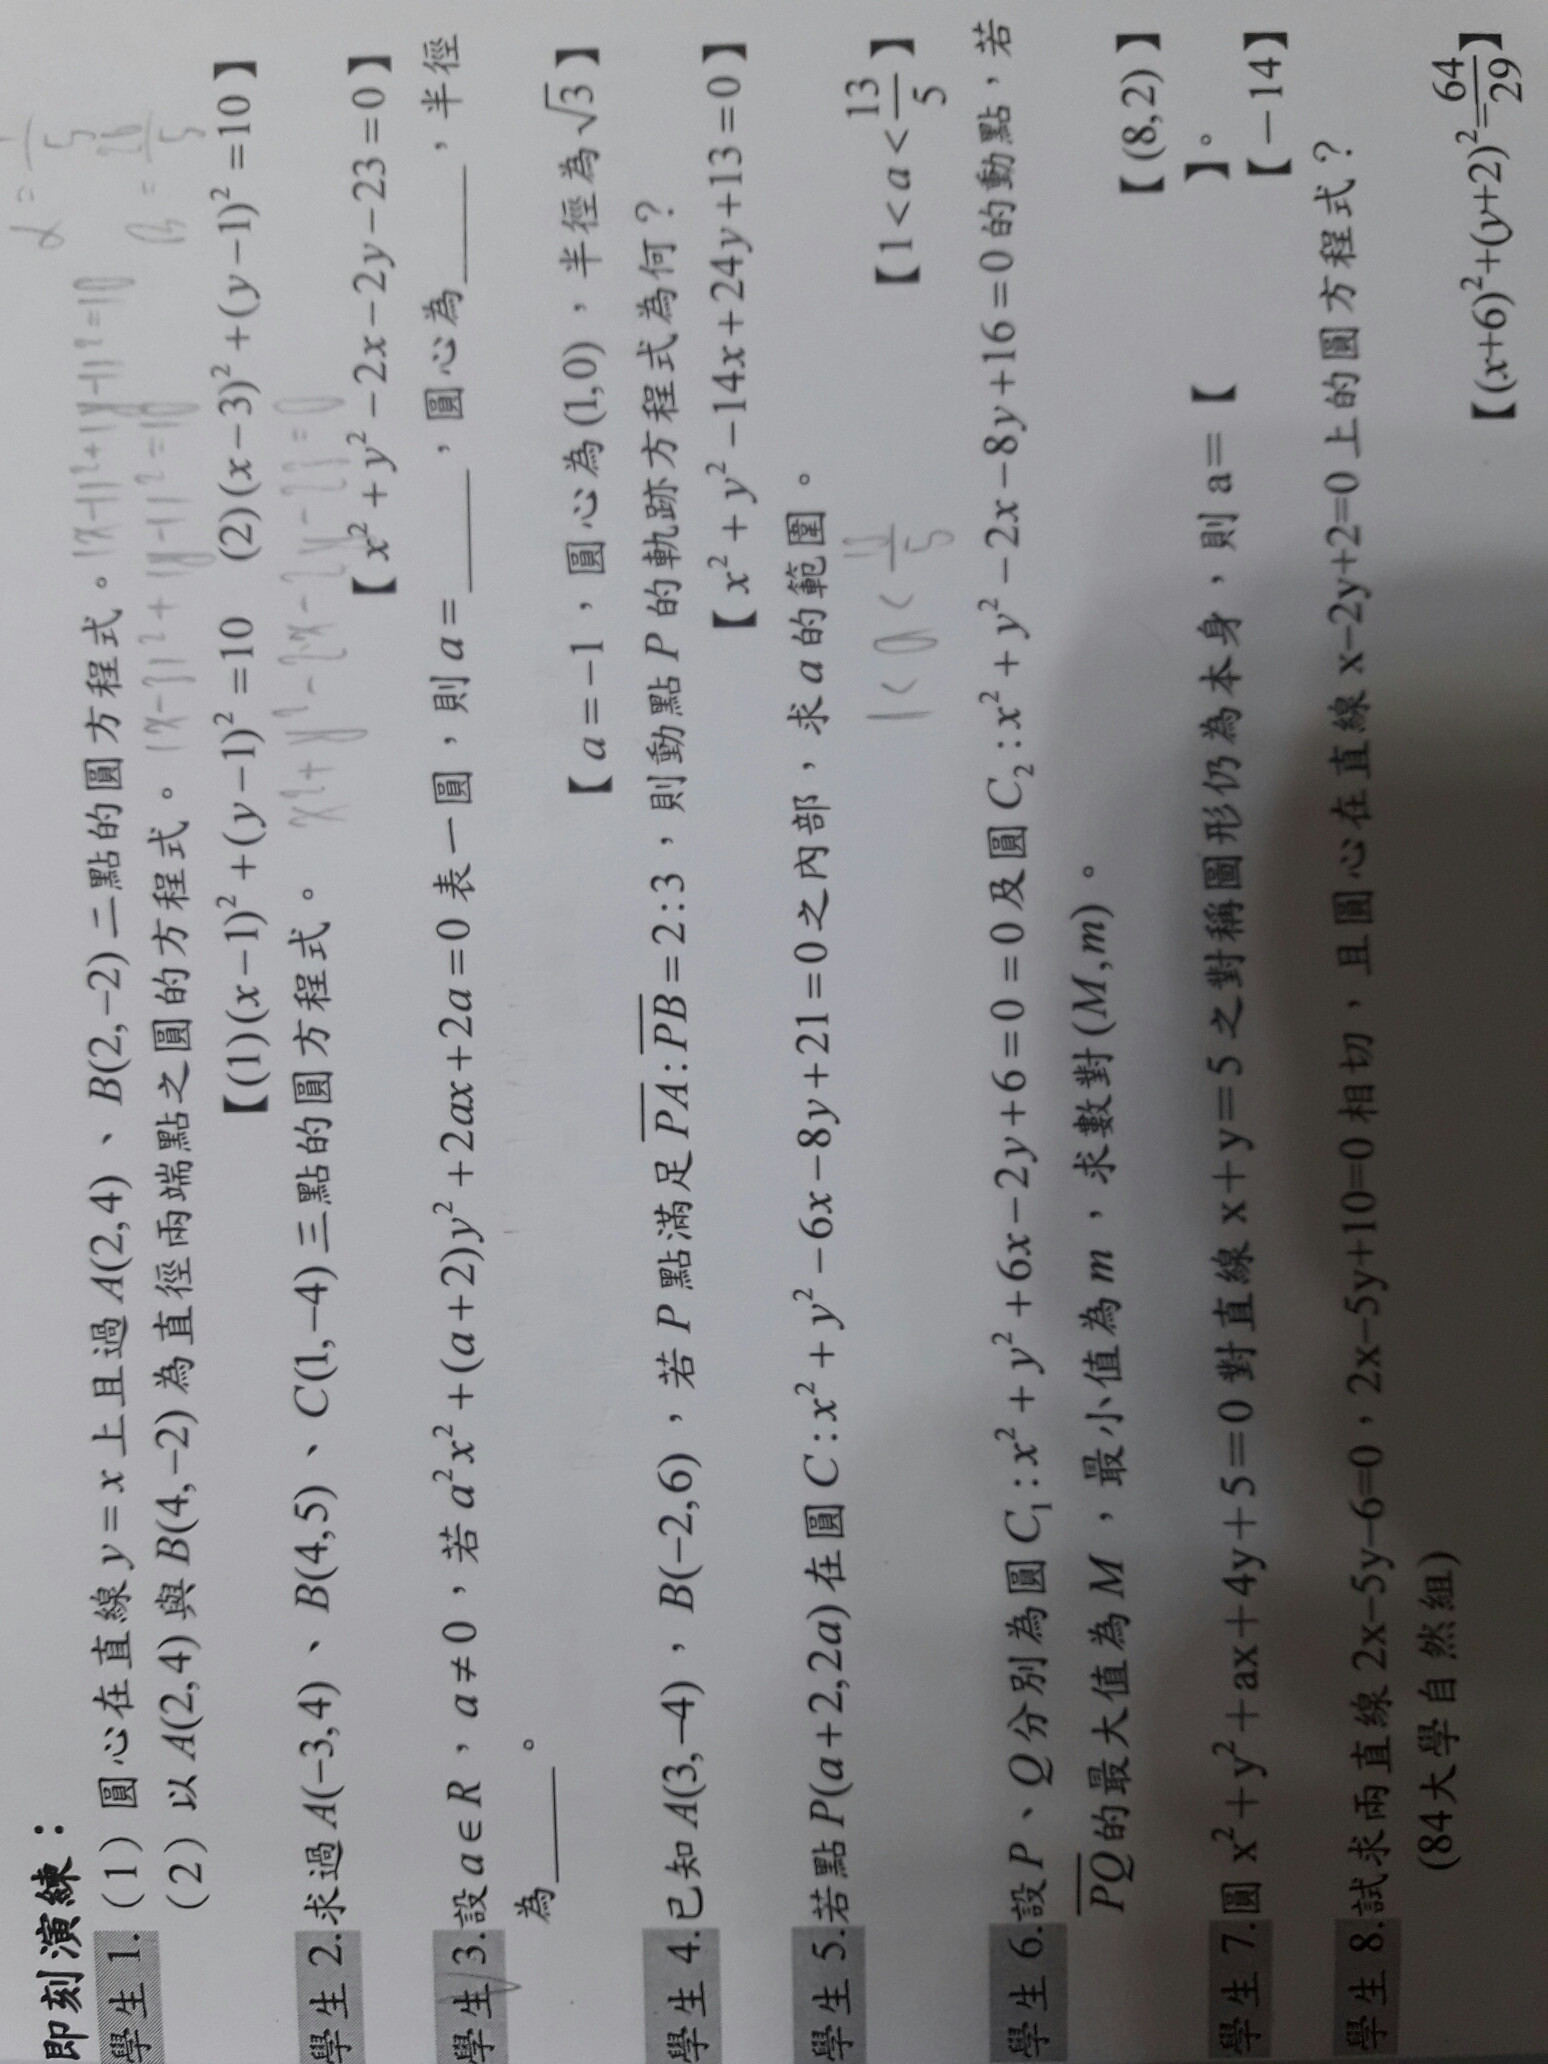 即刻演練：
學生 1. (1) 圓心在直線 y=x 上且過 A(2,4)、B(2,−2) 二點的圓方程式。 (x-1)²+(y-1)²=10
(2) 以 A(2,4) 與 B(4,−2) 為直徑兩端點之圓的方程式。 (x-3)²+(y-1)²=10
【(1)(x−1)²+(y−1)²=10 (2)(x−3)²+(y−1)²=10】
學生 2. 求過 A(−3,4)、B(4,5)、C(1,−4) 三點的圓方程式。 x²+y²-2x-2y-23=0
【x²+y²−2x−2y−23=0】
學生 3. 設 a∈R，a≠0，若 a²x²+(a+2)y²+2ax+2a=0 表一圓，則 a=____，圓心為____，半徑
為____。
【a=−1，圓心為(1,0)，半徑為√3】
學生 4. 已知 A(3,−4)，B(−2,6)，若 P 點滿足 PA:PB=2:3，則動點 P 的軌跡方程式為何？
【x²+y²−14x+24y+13=0】
學生 5. 若點 P(a+2,2a) 在圓 C:x²+y²−6x−8y+21=0 之內部，求 a 的範圍。
1<a<13/5
【1<a<13/5】
學生 6. 設 P、Q 分別為圓 C₁:x²+y²+6x−2y+6=0=0 及圓 C₂:x²+y²−2x−8y+16=0 的動點，若
PQ 的最大值為 M，最小值為 m，求數對 (M,m)。
【(8,2)】
學生 7. 圓 x²+y²+ax+4y+5=0 對直線 x+y=5 之對稱圖形仍為本身，則 a=【 】。
【−14】
學生 8. 試求兩直線 2x−5y−6=0，2x−5y+10=0 相切，且圓心在直線 x−2y+2=0 上的圓方程式？
(84大學自然組)
【(x+6)²+(y+2)²=64/29】